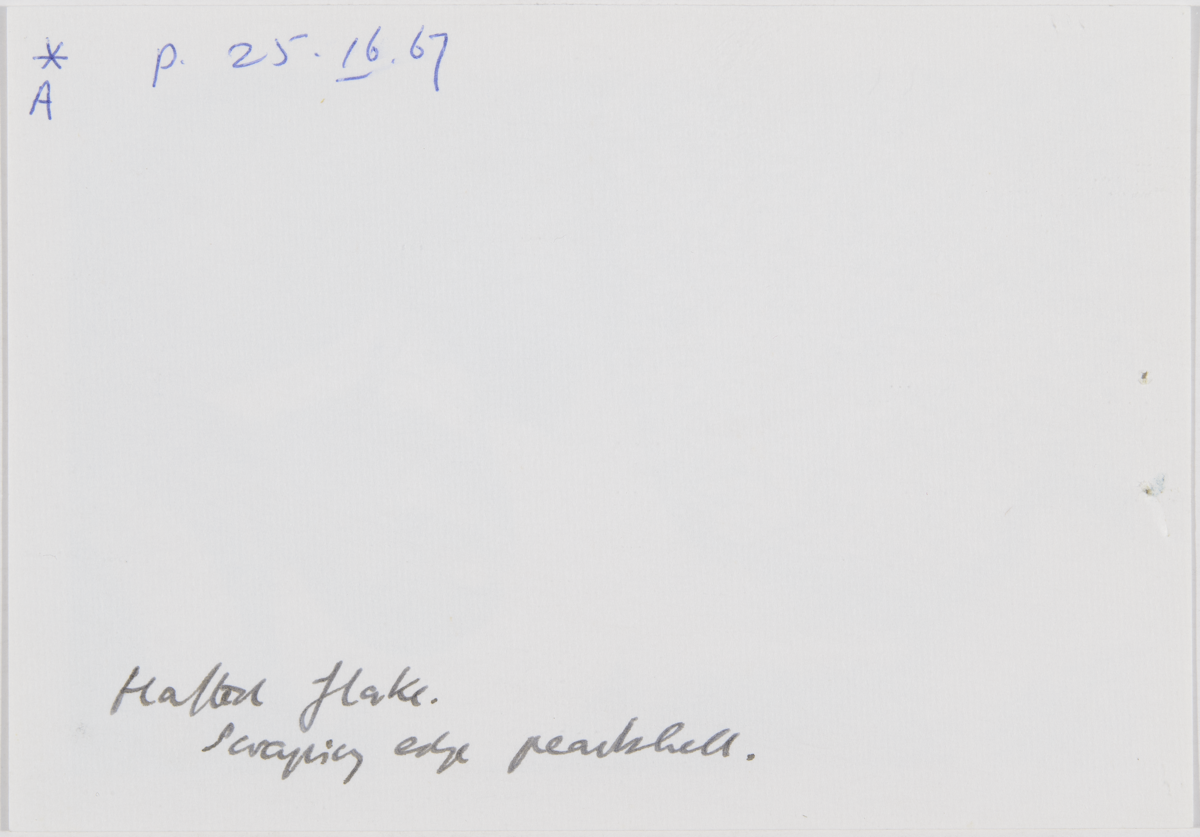 * p. 25. 16. 67
A
Hafted flake.
Scraping edge pearlshell.